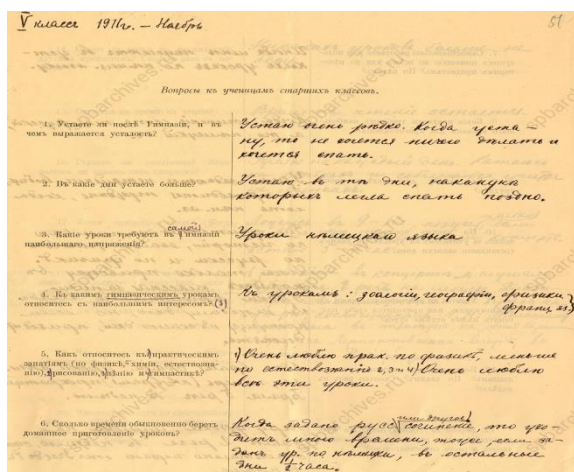 V классъ 1911г. – Ноябрь
51
Вопросы къ ученицамъ старшихъ классовъ.
1. Устаете ли послѣ Гимназіи, и въ
чемъ выражается усталость?
Устаю очень рѣдко. Когда уста–
ну, то не хочется ничего дѣлать и
хочется спать.
2. Въ какіе дни устаете больше?
Устаю въ тѣ дни, наканунѣ
которыхъ легла спать поздно.
3. Какіе уроки требуютъ въ самой гимназіи
наибольшаго напряженія?
Уроки нѣмецкаго языка
4. Къ какимъ гимназическимъ урокамъ
относитесь съ наибольшимъ интересомъ? (3)
Къ урокамъ: зоологіи, географіи, физики
франц. яз.
5. Какъ относитесь къ практическимъ
занятіямъ (по физикѣ, химіи, естествозна-
нію), рисованію, пѣнію и гимнастикѣ?
1) Очень люблю прак. по физикѣ, меньше
по естествознанію 2, 3 и 4) Очень люблю
всѣ эти уроки.
6. Сколько времени обыкновенно беретъ
домашнее приготовленіе уроковъ?
Когда задано русс. сочиненіе, то ухо-
дитъ много времени, тоже если за-
данъ ур. по нѣмецки, въ остальные
дни 1/2 часа.
spbarchives.ru